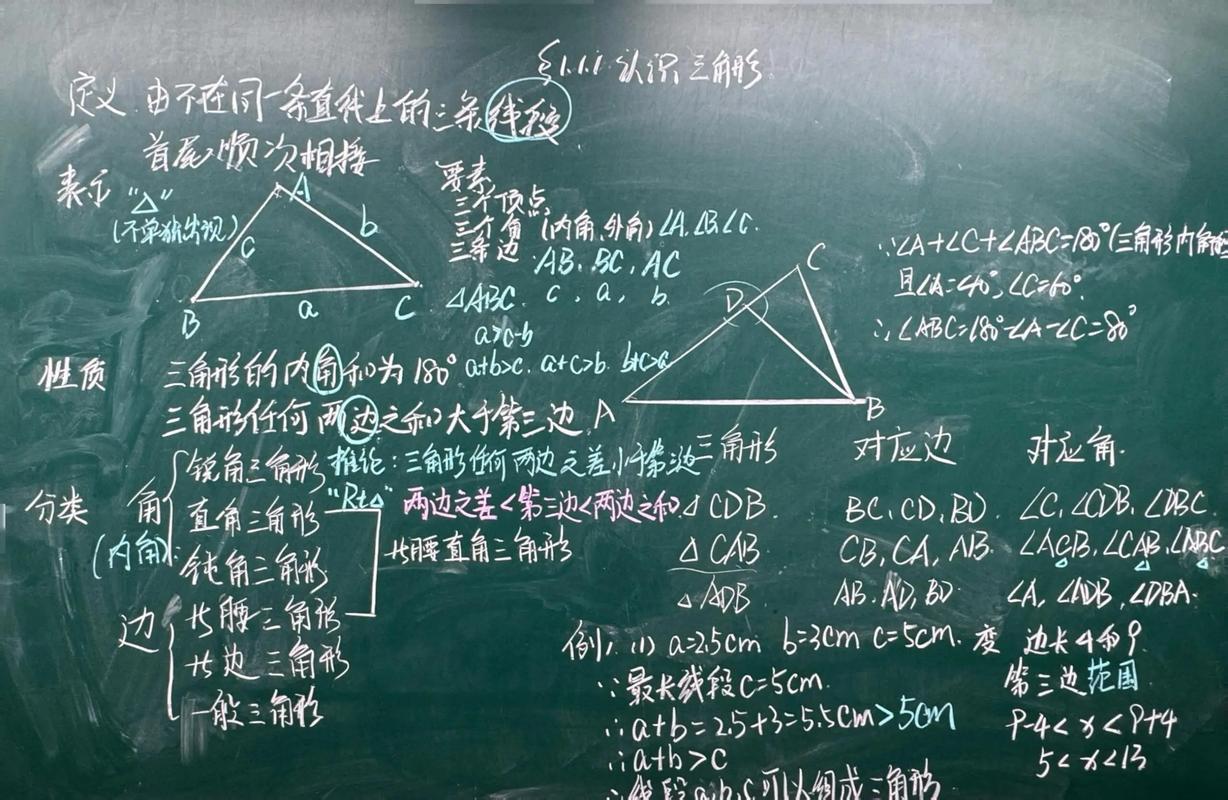 §1.1.1 认识三角形
定义 由不在同一条直线上的三条线段
首尾顺次相接
表示 "△"
(不单独出现)
A
c
b
B
a
C
要素
三个顶点
三个角 (内角、外角) ∠A、∠B、∠C.
三条边 AB、BC、AC
△ABC. c, a, b.
a>c-b
a+b>c. a+c>b. b+c>a
性质 三角形的内角和为180°
三角形任何两边之和大于第三边
推论:三角形任何两边之差小于第三边
两边之差<第三边<两边之和
分类 角 (内角)
锐角三角形
直角三角形 "Rt△"
钝角三角形
边
等腰三角形
等边三角形
一般三角形
等腰直角三角形
C
D
A
B
∵∠A+∠C+∠ABC=180°(三角形内角
且∠A=40°,∠C=60°.
∴∠ABC=180°-∠A-∠C=80°
三角形 对应边 对应角.
△CDB. BC、CD、BD. ∠C、∠CDB、∠DBC.
△CAB. CB、CA、AB. ∠ACB、∠CAB、∠ABC
△ADB. AB、AD、BD. ∠A、∠ADB、∠DBA.
例1. (1) a=2.5cm b=3cm c=5cm.
∵最长线段c=5cm.
∴a+b=2.5+3=5.5cm>5cm
∴a+b>c
∴线段a,b,c可以组成三角形.
变 边长4和9.
第三边范围.
9-4<x<9+4
5<x<13